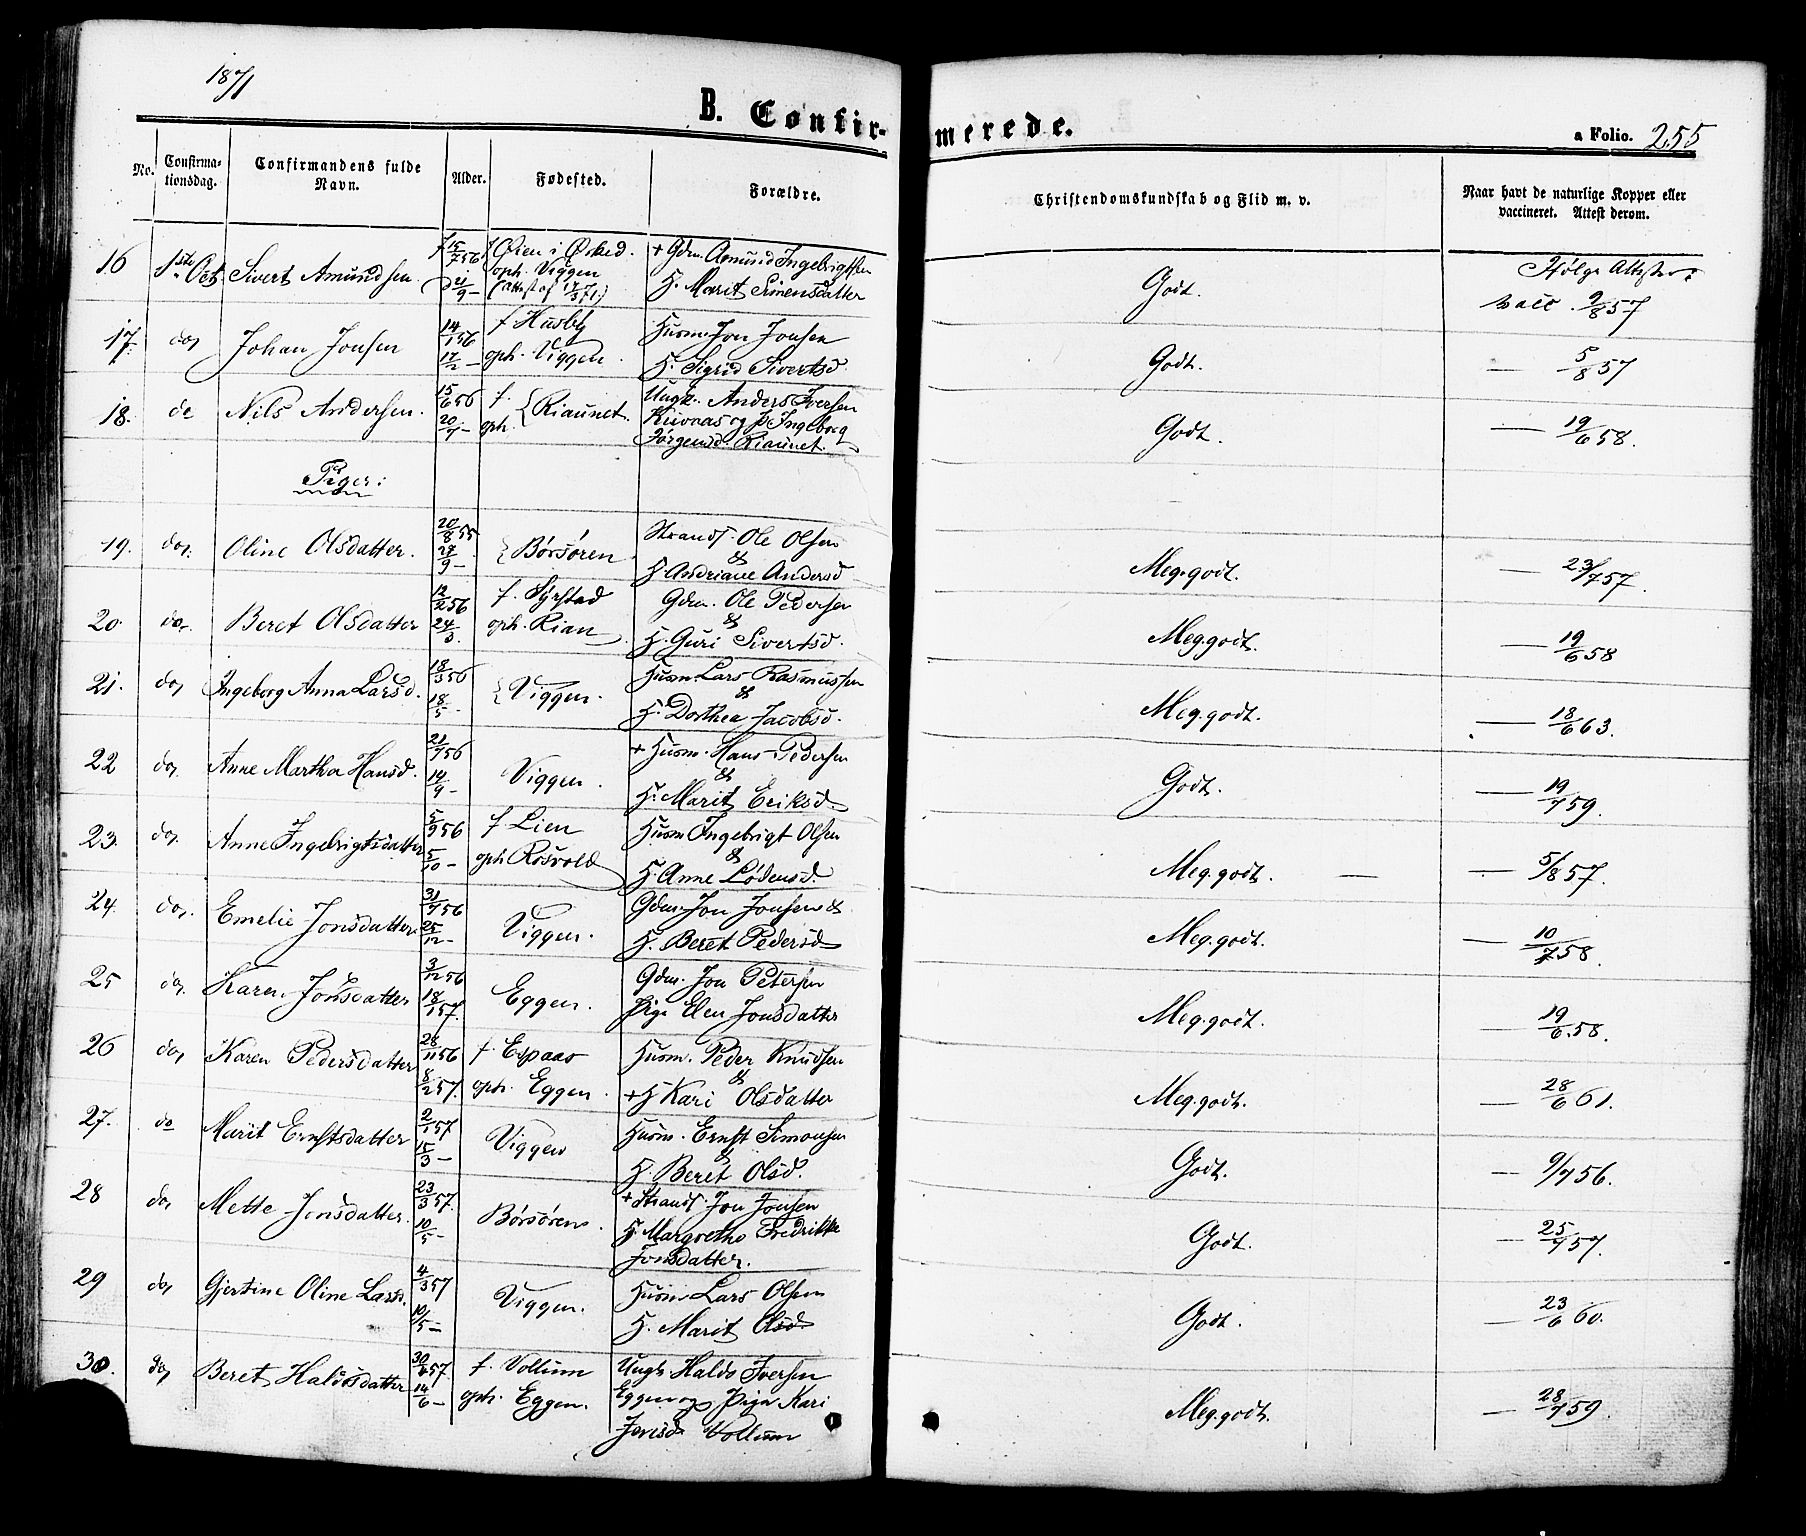 1871
B. Confirmerede.
a Folio. 255
No. Confirmationsdag. Confirmandens fulde Navn. Alder. Fødested. Forældre. Christendomskundskab og Flid m. v. Naar havt de naturlige Kopper eller vaccineret. Attest derom.
16 1ste Oct Sivert Amundsen f 15/7 56 f Øien i Ørked. + Gdm. Amund Ingebrigtsen Godt. Ifølge Attester:
D 21/9 – oph. Viggen H. Marit Simensdatter vacc. 9/8 57
(Attest af 17/3 71)
17. do Johan Jonsen 14/1 56 f Husby Husm. Jon Jonsen Godt. — 5/8 57
17/2 – oph. Viggen. H. Sigrid Sivertsd
18. do Nils Andersen. 15/6 56 f. Riaunet. Ungk. Anders Iversen Godt. — 19/6 58.
20/7 – oph. Kuvaas og P. Ingeborg
Jørgensd. Riaunet.
Piger:
19. do. Oline Olsdatter. 20/8 55 Børsøren Strands. Ole Olsen Meg.godt. — 23/7 57.
27/9 – & H. Andriane Andersd
20. do. Beret Olsdatter 12/2 56 f. Syrstad Gdm. Ole Pedersen Meg.godt. — 19/6 58
24/3 oph. Rian. & H. Guri Sivertsd.
21. do Ingeborg Anna Larsd. 18/3 56 Viggen. Husm Lars Rasmussen Meg.godt. — 18/6 63.
18/5 & H. Dorthea Jacobsd.
22 do. Anne Martha Hansd. 21/7 56 Viggen. + Husm. Hans Pedersen Godt. — 19/7 59.
14/9 – & H. Marit Eriksd.
23. do. Anne Ingebrigtsdatter 5/9 56 f Lien Husm Ingebrigt Olsen Meg.godt. — — 5/8 57.
5/10 – oph. Rosvold & H. Anne Lødensd.
24. do. Emelie Jonsdatter. 31/7 56 Viggen. Gdm. Jon Jonsen & Meg.godt. — 10/7 58.
25/12 – H. Beret Pedersd
25 do. Karen Jonsdatter 3/12 56 Eggen. Gdm. Jon Petersen Meg.godt. — 19/6 58.
18/1 57. Pige Elen Jonsdatter
26 do. Karen Pedersdatter 28/11 56 f. Espaas Husm. Peder Knudsen Meg.godt. — 28/6 61.
8/2 57. oph. Eggen. & + H Kari Olsdatter
27. do Marit Ernstsdatter 2/1 57 Viggen Husm. Ernst Simonsen Godt. — 9/7 56.
15/3 – & H. Beret Olsd.
28 do. Mette Jonsdatter. 23/3 57. Børsøren. + Strands. Jon Jonsen Godt. — 25/7 57.
10/5 – H. Margrethe Fredrikke
Jonsdatter.
29 do, Gjertine Oline Larsd. 4/3 57 Viggen. Husm Lars Olsen Godt. — 23/6 60.
10/5 – H. Marit Olsd
30. do, Beret Haldosdatter 30/4 57. f. Vollum Ungk. Haldo Iversen Meg.godt. — 28/7 59.
14/6 – oph. Eggen. Eggen og Pige Kari
Jonsd Vollum